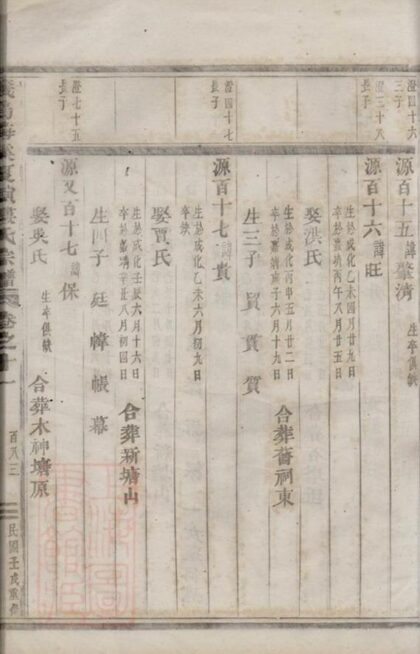 澄四十六三子
源百十五 諱肇清 生卒俱缺
澄三十八長子
源百十六 諱旺
生於成化乙未四月廿九日
卒於嘉靖丙午八月廿五日
娶洪氏
生於成化丙申五月廿二日
卒於嘉靖 子六月十九日
合葬舊祠東
生三子 貿 賈 質
澄四十七長子
源百十七 諱貴
生於成化乙未六月初九日
卒缺
娶賈氏
生於成化壬辰六月十六日
卒於嘉靖辛丑八月初四日
合葬新塘山
生四子 廷 幃 帳 幕
澄七十五長子
源又百十七 諱保
娶吳氏 生卒俱缺
合葬木神塘原
氏宗譜 卷之十一
百八三
民國壬戌重修